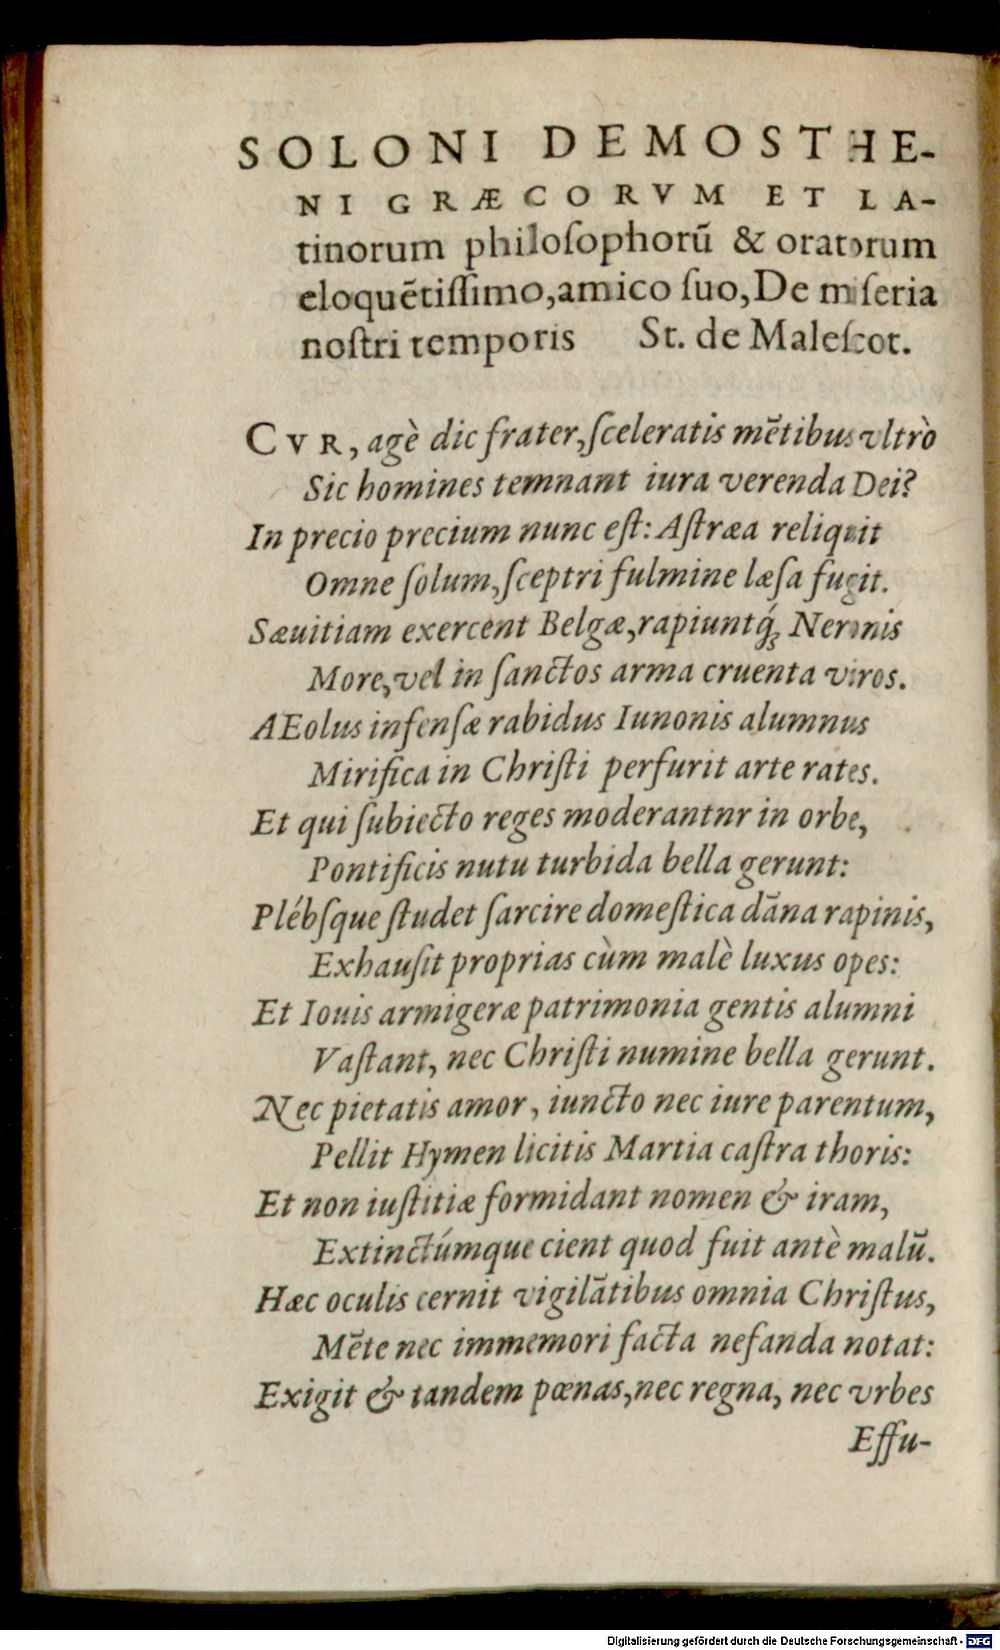 SOLONI DEMOSTHE-
NI GRÆCORVM ET LA-
tinorum philoſophorũ & oratorum
eloquẽtiſſimo, amico ſuo, De miſeria
noſtri temporis St. de Maleſcot.
CVR, agè dic frater, ſceleratis mẽtibus vltrò
Sic homines temnant iura verenda Dei?
In precio precium nunc eſt: Aſtræa reliquit
Omne ſolum, ſceptri fulmine læſa fugit.
Sæuitiam exercent Belgæ, rapiuntq́; Neronis
More, vel in ſanctos arma cruenta viros.
AEolus infenſæ rabidus Iunonis alumnus
Mirifica in Chriſti perfurit arte rates.
Et qui ſubiecto reges moderantnr in orbe,
Pontificis nutu turbida bella gerunt:
Plébſque ſtudet ſarcire domeſtica dãna rapinis,
Exhauſit proprias cùm malè luxus opes:
Et Iouis armigeræ patrimonia gentis alumni
Vaſtant, nec Chriſti numine bella gerunt.
Nec pietatis amor, iuncto nec iure parentum,
Pellit Hymen licitis Martia caſtra thoris:
Et non iuſtitiæ formidant nomen & iram,
Extinctúmque cient quod fuit antè malũ.
Hæc oculis cernit vigilãtibus omnia Chriſtus,
Mẽte nec immemori facta nefanda notat:
Exigit & tandem pœnas, nec regna, nec vrbes
Effu-
Digitalisierung gefördert durch die Deutsche Forschungsgemeinschaft - DFG